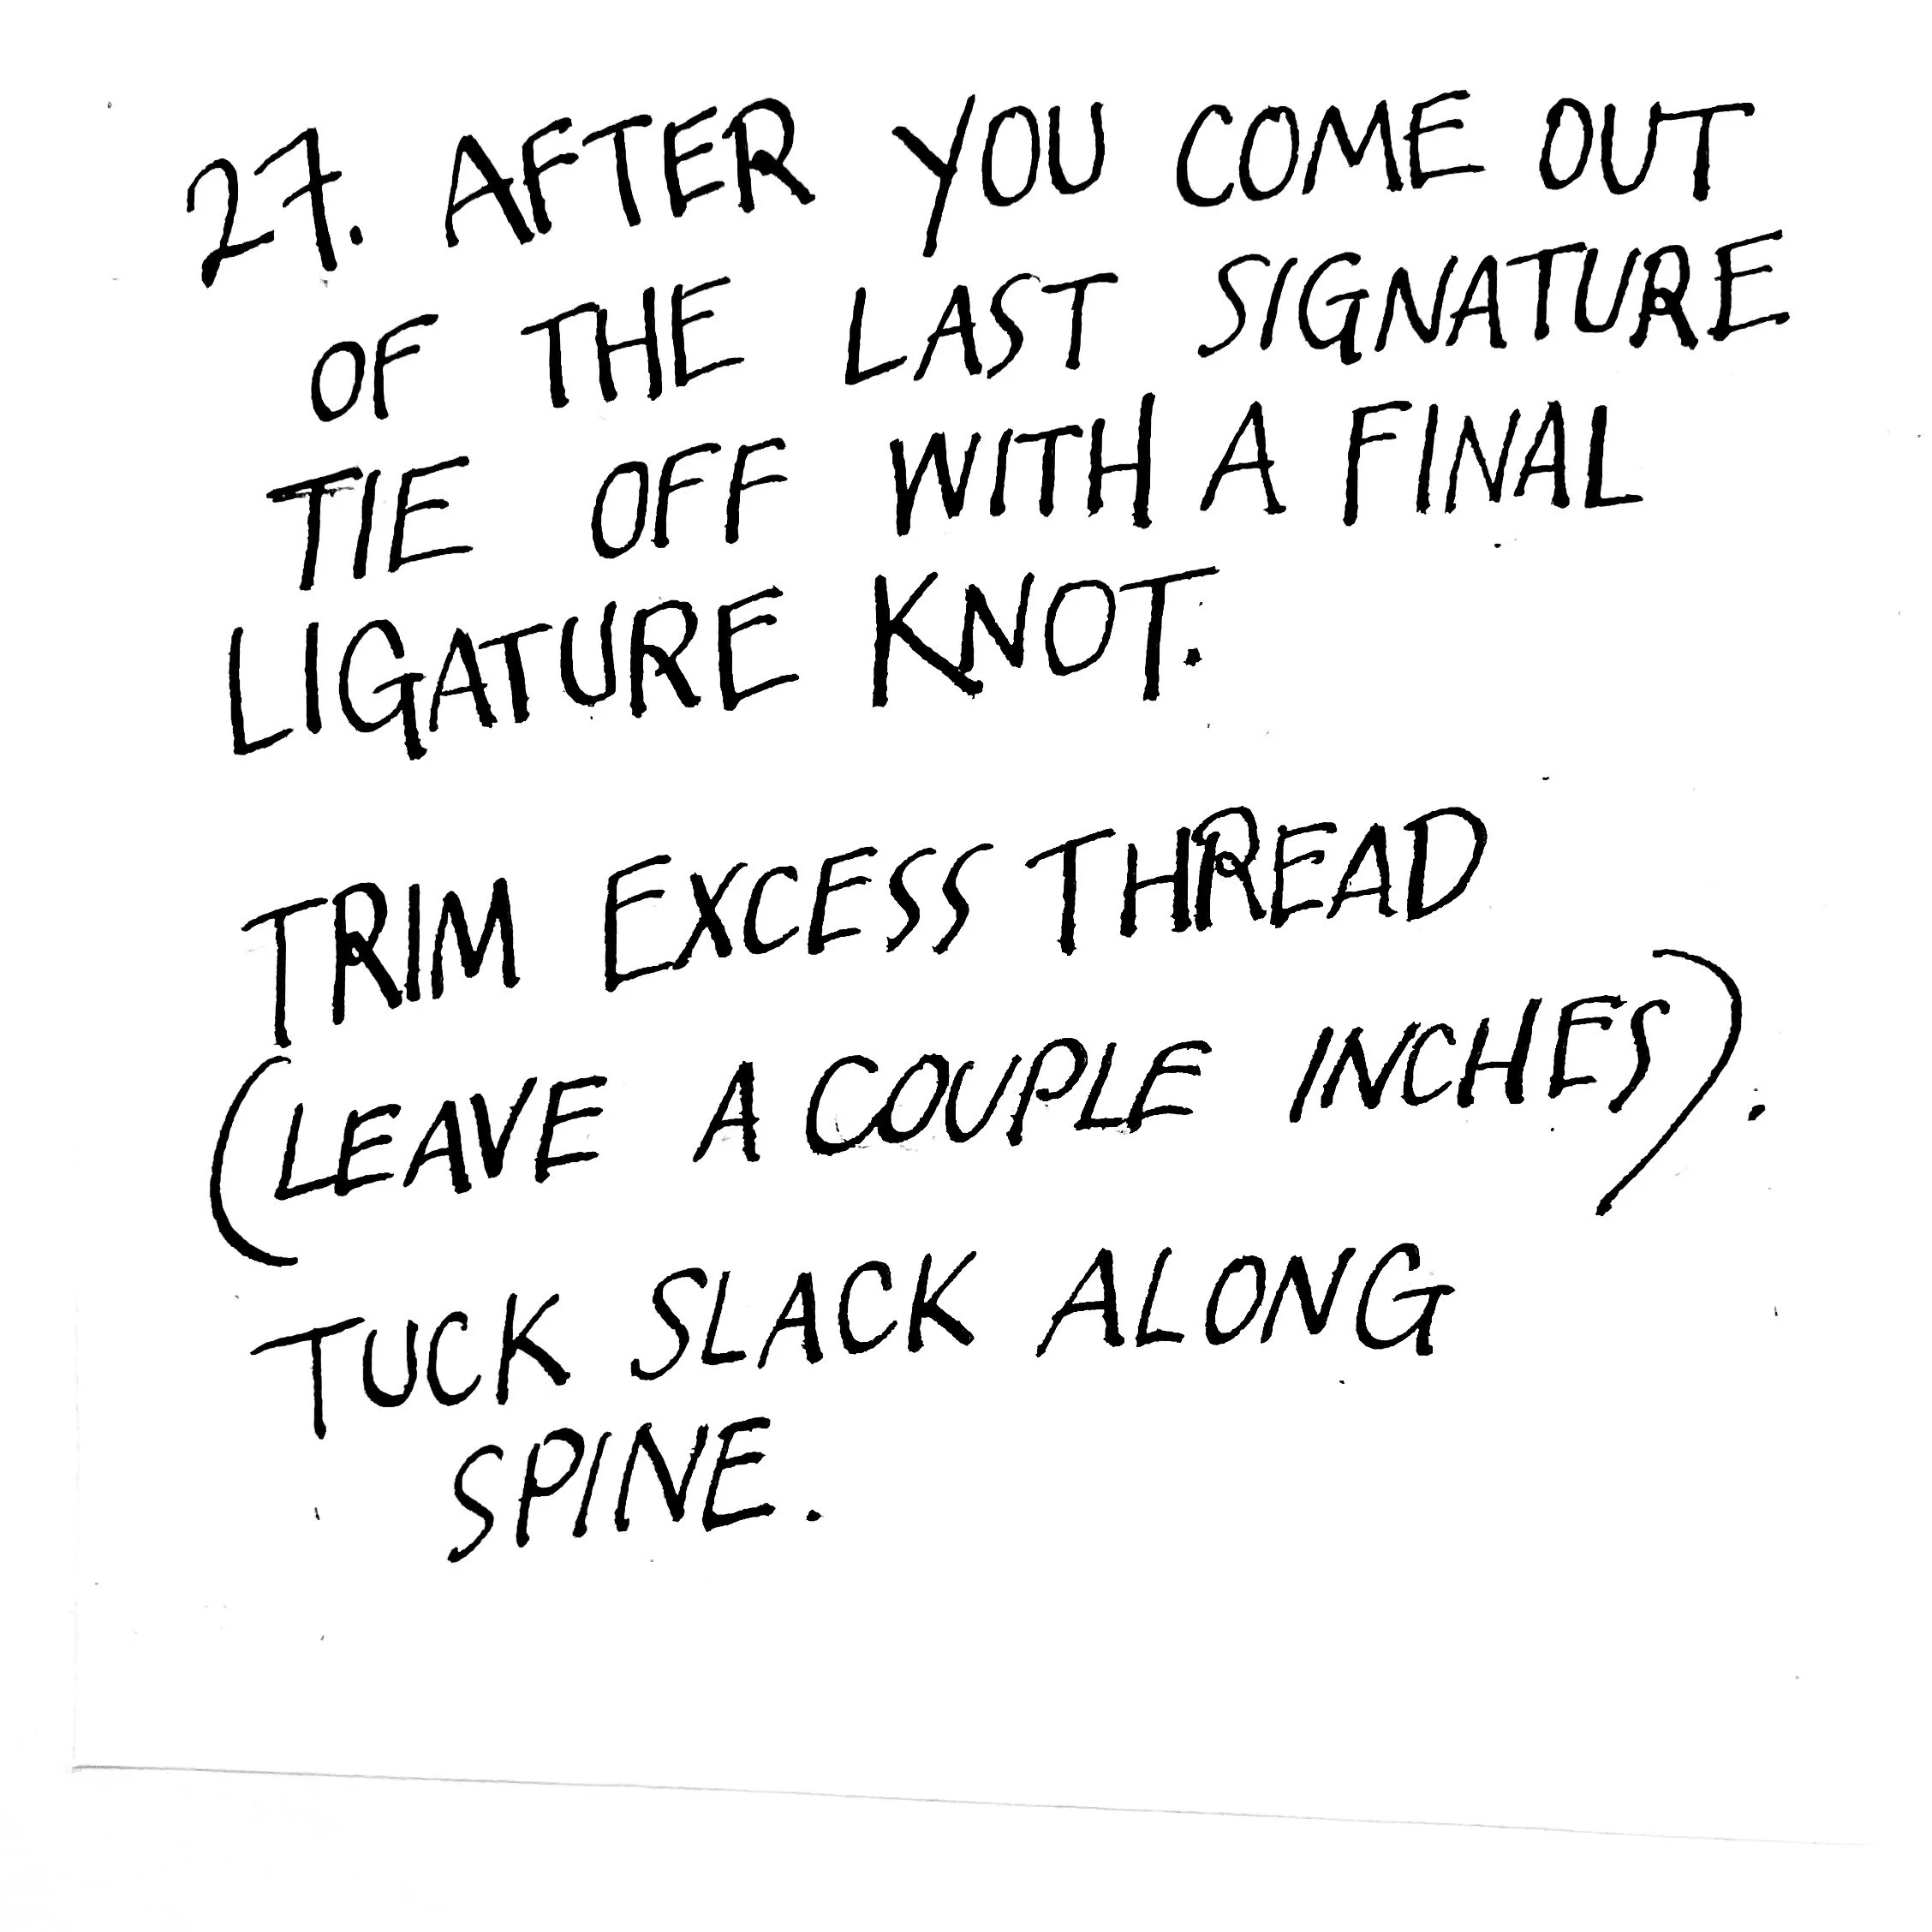 27. AFTER YOU COME OUT
OF THE LAST SIGNATURE
TIE OFF WITH A FINAL
LIGATURE KNOT.
TRIM EXCESS THREAD
(LEAVE A COUPLE INCHES).
TUCK SLACK ALONG
SPINE.